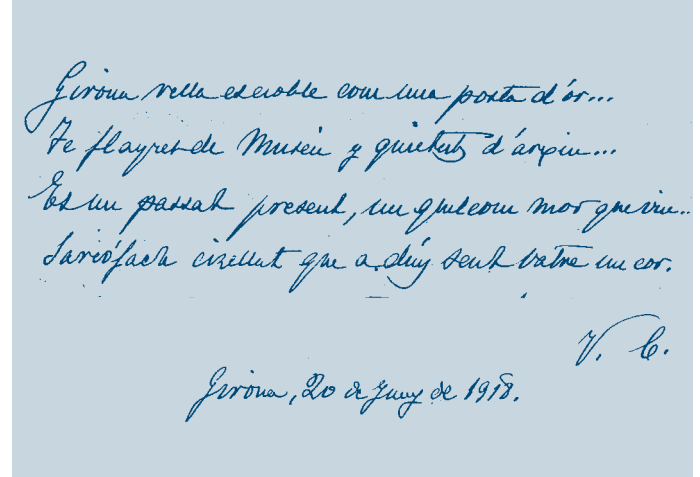 Girona vella es noble com una posta d'ór...
Te flayres de Museu y quietut d'arxiu...
Es un passat present, un quelcom mor que viu...
Sarcófach cizellat que a díns sent batre un cor.
V. C.
Girona, 20 de Juny de 1918.